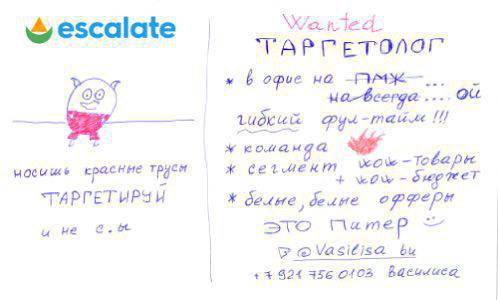 escalate
носишь красные трусы
ТАРГЕТИРУЙ
и не с.ы
Wanted
ТАРГЕТОЛОГ
* в офис на ПМЖ ...
на всегда .... ОЙ
гибкий фул-тайм !!!
* команда
* сегмент wow-товары
+ wow-бюджет
* белые, белые офферы
ЭТО Питер
@Vasilisa bu
+7 921 756 0103 Василиса